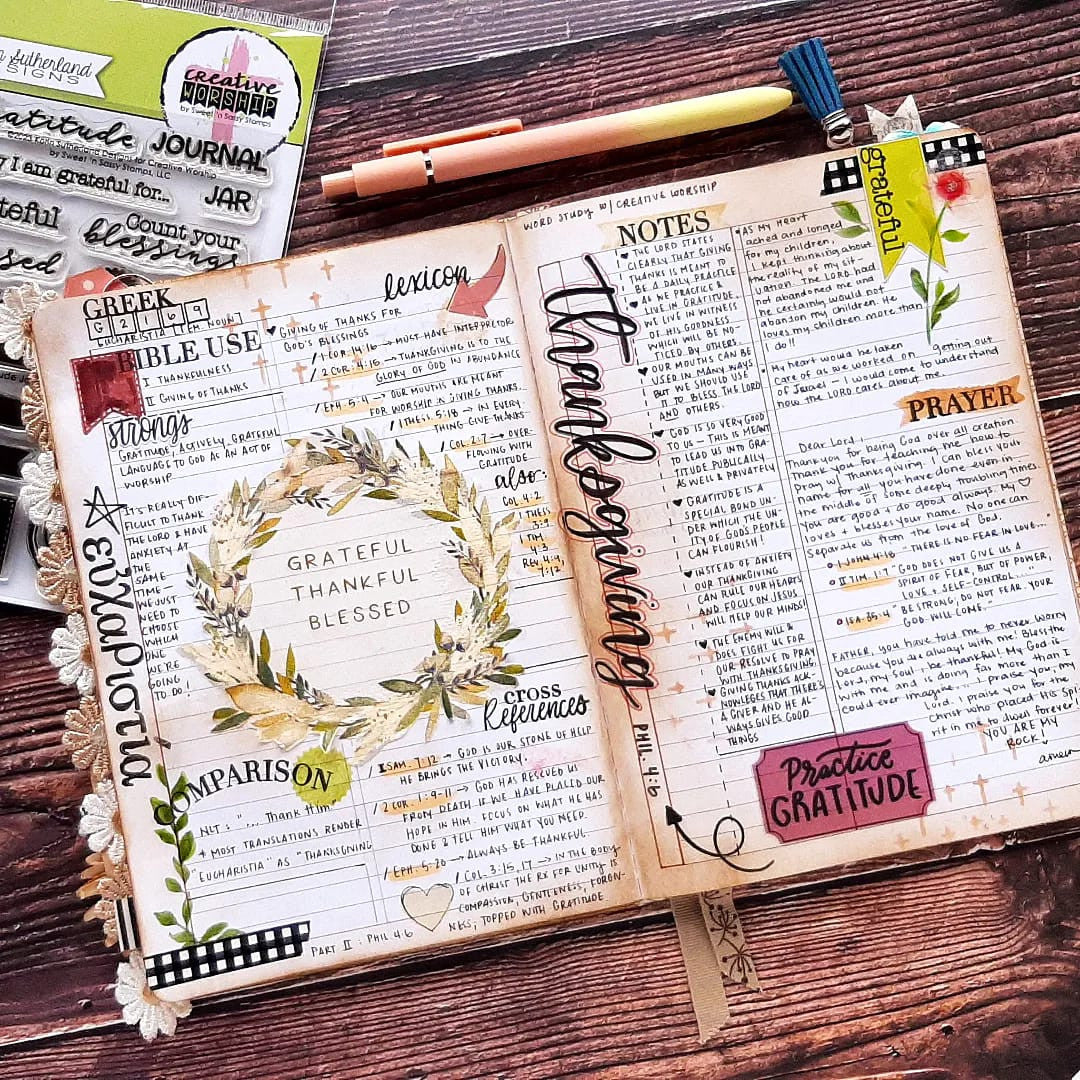 Sutherland
SIGNS
creative
WORSHIP
by Sweet 'n Sassy Stamps
atitude
JOURNAL
©2023 Kayla Sutherland Designs for Creative Worship
by Sweet 'n Sassy Stamps, LLC.
I am grateful for...
JAR
Count your
blessings
GREEK
G 2 1 6 9
EUCHARISTIA (FEM NOUN)
BIBLE USE
I THANKFULNESS
II GIVING OF THANKS
strongs
GRATITUDE, ACTIVELY, GRATEFUL
LANGUAGE TO GOD AS AN ACT OF
WORSHIP
IT'S REALLY DIF-
FICULT TO THANK
THE LORD & HAVE
ANXIETY AT
THE
SAME-
TIME-
WE JUST
NEED TO
CHOOSE
WHICH
ONE
WE'RE
GOING
TO DO!
εὐχαριστία
lexicon
GIVING OF THANKS FOR
GOD'S BLESSINGS
/ 1 COR. 14:16 → MUST HAVE INTERPRETOR
/ 2 COR. 4:15 → THANKSGIVING IS TO THE
GLORY OF GOD IN ABUNDANCE
/ EPH. 5:4 → OUR MOUTHS ARE MEANT
FOR WORSHIP & GIVING THANKS.
/ 1 THESS. 5:18 → IN EVERY
THING-GIVE-THANKS-
/ COL. 2:7 → OVER-
FLOWING WITH
GRATITUDE
also:
COL 4:2
1 THESS
3:9
1 TIM.
4:3
REV. 4:9
7:12
GRATEFUL
THANKFUL
BLESSED
COMPARISON
NLT: "... Thank Him"
+ MOST TRANSLATIONS RENDER
"EUCHARISTIA" AS "THANKSGIVING
CROSS
References
/ 1 SAM. 7:12 → GOD IS OUR STONE OF HELP
HE BRINGS THE VICTORY.
/ 2 COR. 1:9-11 → GOD HAS RESCUED US
FROM DEATH IF WE HAVE PLACED OUR
HOPE IN HIM. FOCUS ON WHAT HE HAS
DONE & TELL HIM WHAT YOU NEED.
/ EPH. 5:20 → ALWAYS BE THANKFUL.
/ COL. 3:15, 17 → IN THE BODY
OF CHRIST THE RX FOR UNITY IS
COMPASSION, GENTLENESS, FORGIV-
NESS; TOPPED WITH GRATITUDE
PART II : PHIL 4:6
WORD STUDY W/ CREATIVE WORSHIP
Thanksgiving
PHIL. 4:6
NOTES
THE LORD STATES
CLEARLY THAT GIVING
THANKS IS MEANT TO
BE A DAILY PRACTICE
AS WE PRACTICE &
LIVE IN GRATITUDE,
WE LIVE IN WITNESS
OF HIS GOODNESS
WHICH WILL BE NO-
TICED BY OTHERS.
OUR MOUTHS CAN BE
USED IN MANY WAYS
BUT WE SHOULD USE
IT TO BLESS THE LORD
AND OTHERS.
GOD IS SO VERY GOOD
TO US - THIS IS MEANT
TO LEAD US INTO GRA-
TITUDE PUBLICALLY
AS WELL & PRIVATELY
GRATITUDE IS A
SPECIAL BOND UN-
DER WHICH THE UN-
ITY OF GOD'S PEOPLE
CAN FLOURISH!
INSTEAD OF ANXIETY
OUR THANKSGIVING
CAN RULE OUR HEARTS
AND FOCUS ON JESUS
WILL MELD OUR MINDS!
THE ENEMY WILL &
DOES FIGHT US FOR
OUR RESOLVE TO PRAY
WITH THANKSGIVING.
GIVING THANKS ACK-
NOWLEGES THAT THERE'S
A GIVER AND HE AL-
WAYS GIVES GOOD
THINGS
grateful
AS MY Heart
ached and longed
for my children,
I kept thinking about
the reality of my sit-
uation. The LORD had
not abandoned me and
he certainly would not
abandon my children. He
loves my children more than I
do!!
My heart would be taken
care of as we worked on getting out
of Israel - I would come to understand
how the LORD cares about me.
PRAYER
Dear Lord,
Thankyou for being God over all creation.
Thank you for teaching me how to
pray w/ thanksgiving. I can bless your
name for all you have done even in
the middle of some deeply troubling times.
You are good & do good always. My
loves & blesses your name. No one can
Separate us from the love of God.
1 JOHN 4:18 "THERE IS NO FEAR IN LOVE..."
II TIM. 1:7 "GOD DOES NOT GIVE US A
SPIRIT OF FEAR, BUT OF POWER,
LOVE & SELF-CONTROL...."
ISA. 35:4 "BE STRONG; DO NOT FEAR. YOUR
GOD WILL COME."
FATHER, you have told me to never worry
because you are always with me! Bless the
Lord, my Soul, & be thankful! My God is
with me and is doing far more than I
could ever imagine... I praise you, my
Lord. I praise you for the
Christ who placed His Spi
rit in me to dwell forever!
YOU ARE MY
ROCK!
amen
Practice
GRATITUDE